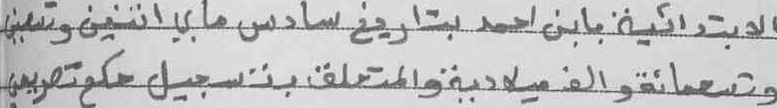 الابتدائية بابن احمد بتاريخ سادس ماي اثنين وتسعين
وتسعمائة والف ميلادية والمتعلق بتسجيل حكم تصريحي